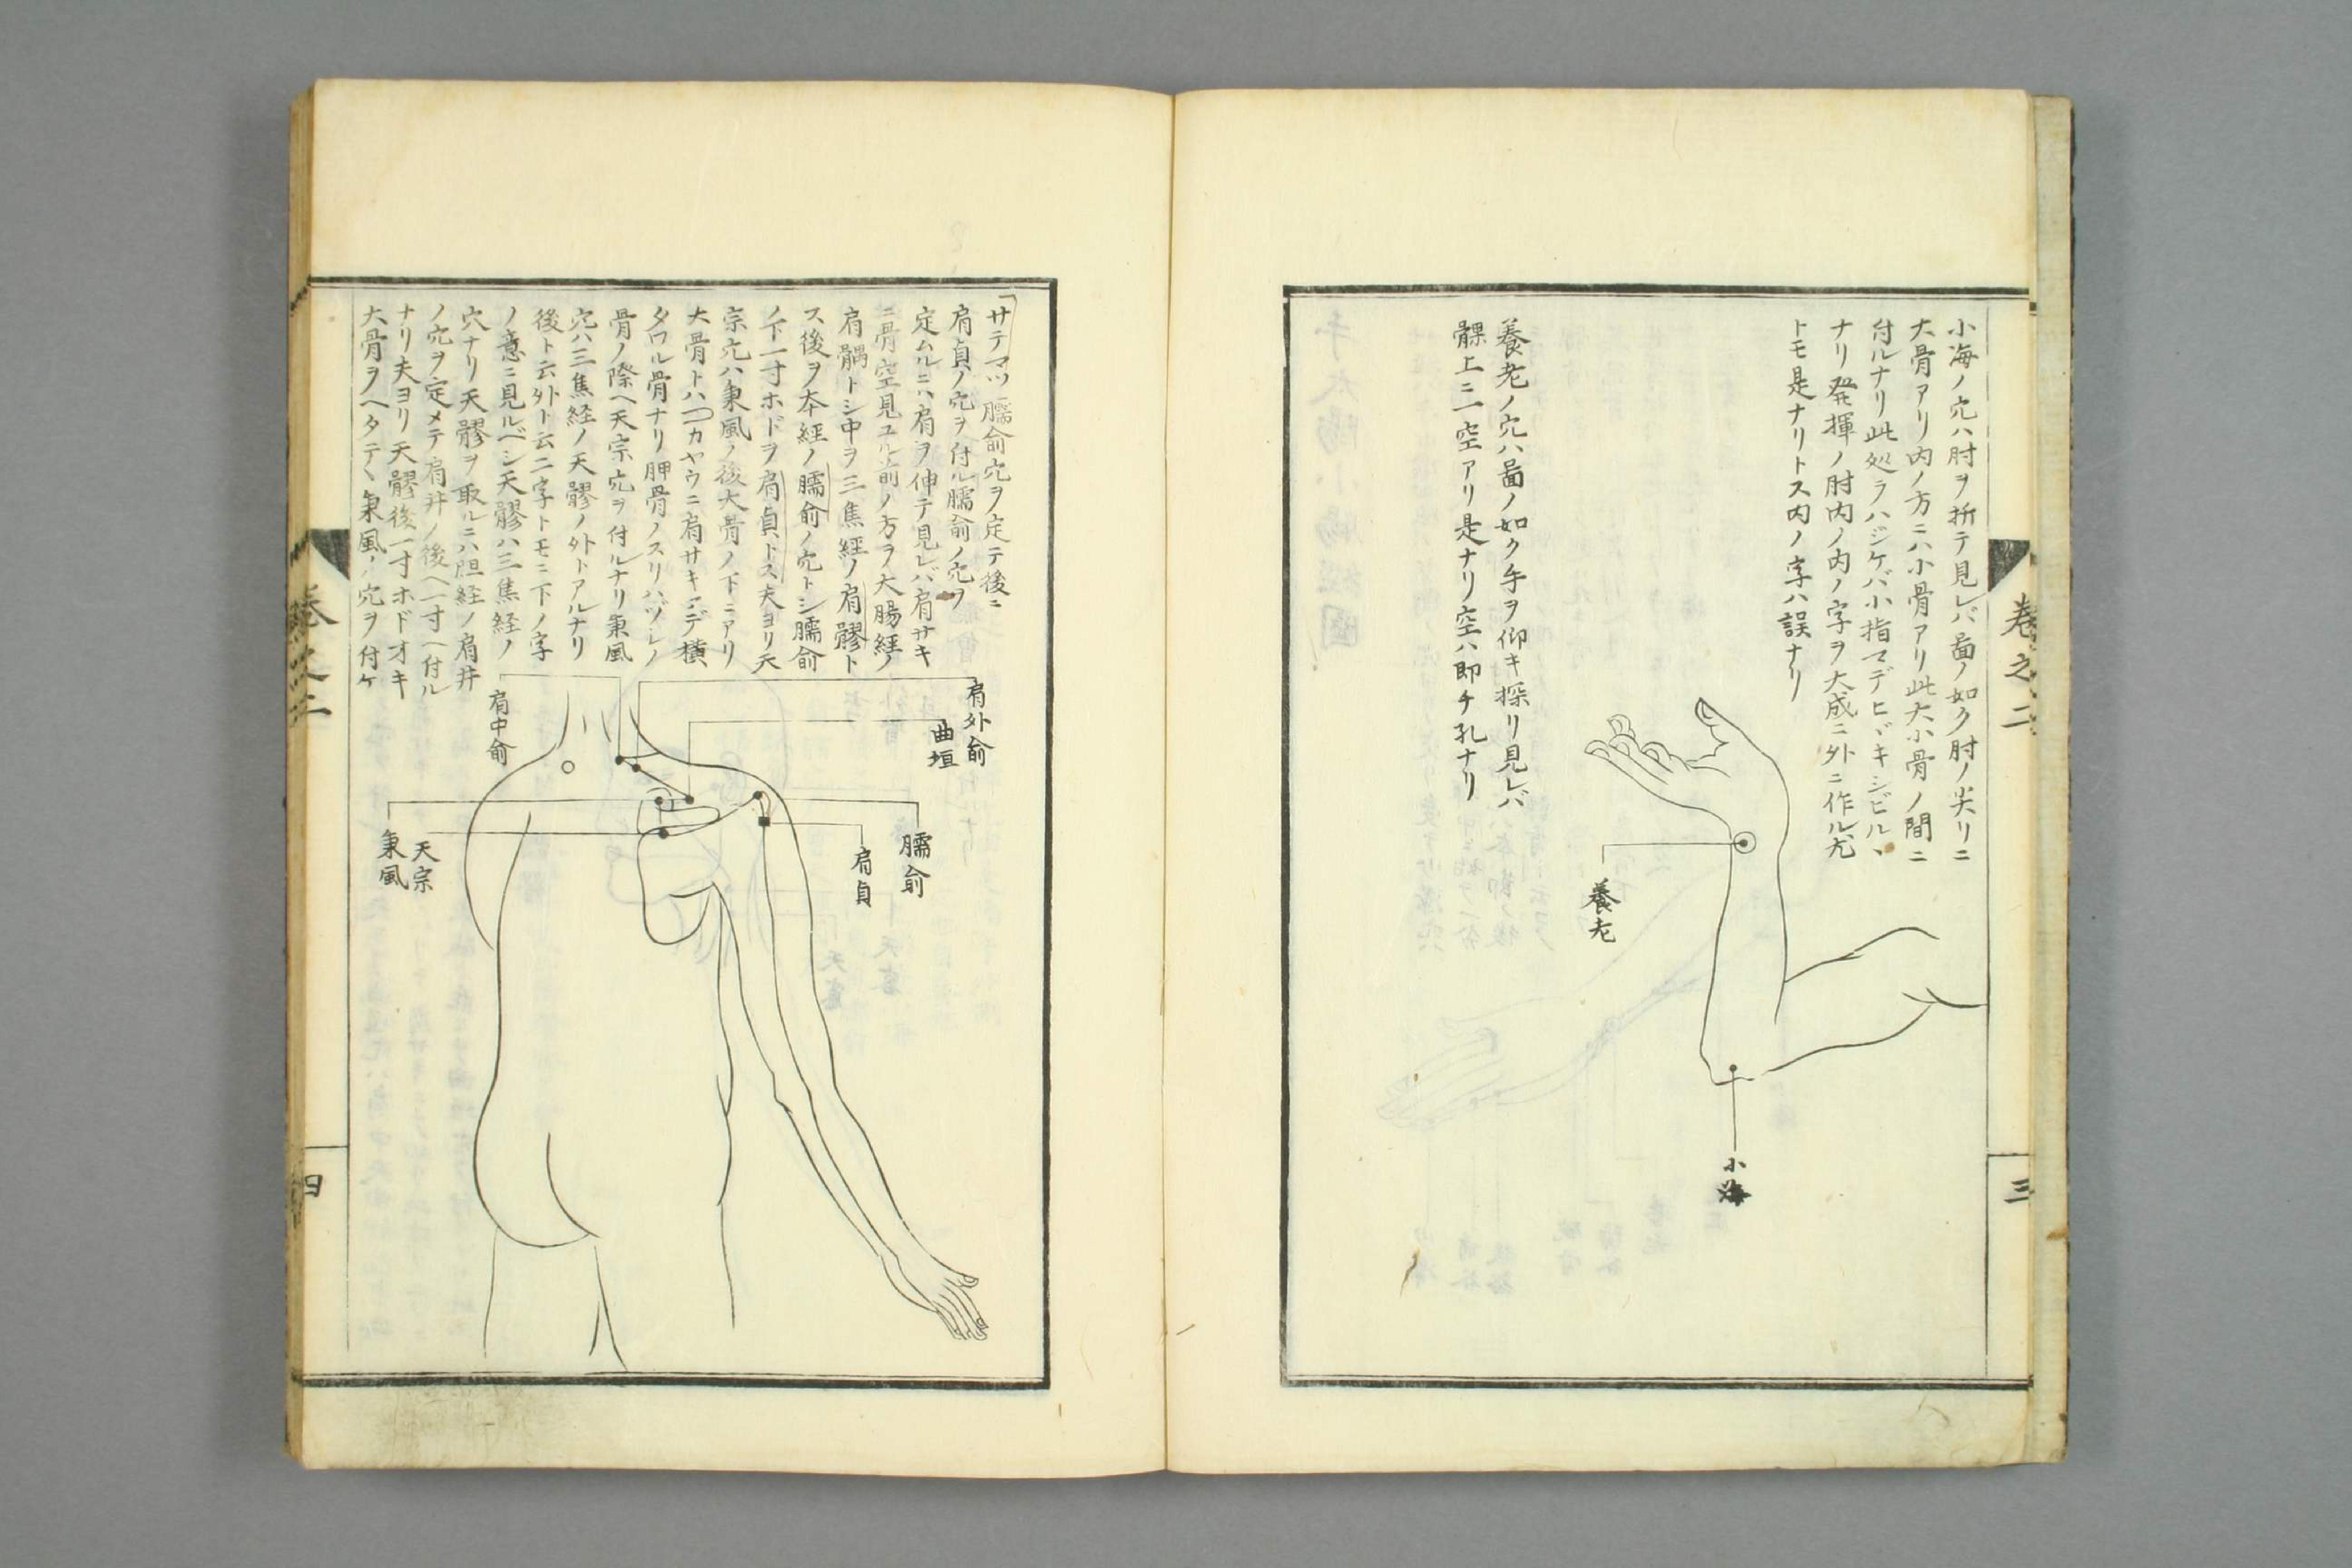 小海ノ穴ハ肘ヲ折テ見レバ啚ノ如ク肘ノ尖リニ
大骨アリ内ノ方ニハ小骨アリ此大小骨ノ間ニ
付ルナリ此処ヲハジケバ小指マデヒヾキシビルヽ
ナリ発揮ノ肘内ノ内ノ字ヲ大成ニ外ニ作ル尤
トモ是ナリトス内ノ字ハ誤ナリ
養老ノ穴ハ啚ノ如ク手ヲ仰キ探リ見レバ
髁上ニ一空アリ是ナリ空ハ即チ孔ナリ
養老
小海
巻之二
三
サテマツ臑俞穴ヲ定テ後ニ
肩貞ノ穴ヲ付ル臑俞ノ穴ヲ
定ムルニハ肩ヲ伸テ見レバ肩サキ
ニ骨空見ユル前ノ方ヲ大腸経ノ
肩髃トシ中ヲ三焦経ノ肩髎ト
ス後ヲ本経ノ臑俞ノ穴トシ臑俞
ノ下一寸ホドヲ肩貞トス夫ヨリ天
宗穴ハ秉風ノ後大骨ノ下ニアリ
大骨トハ カヤウニ肩サキマデ横
タワル骨ナリ胛骨ノスリハヅレノ
骨ノ際ヘ天宗穴ヲ付ルナリ秉風
穴ハ三焦経ノ天髎ノ外トアルナリ
後ト云外ト云二字トモニ下ノ字
ノ意ニ見ルベシ天髎ハ三焦経ノ
穴ナリ天髎ヲ取ルニハ胆経ノ肩井
ノ穴ヲ定メテ肩井ノ後ヘ一寸ヘ付ル
ナリ夫ヨリ天髎後一寸ホドオキ
大骨ヲヘタテヽ秉風ノ穴ヲ付ケ
肩外俞
曲垣
肩中俞
臑俞
肩貞
天宗
秉風
巻之二
四